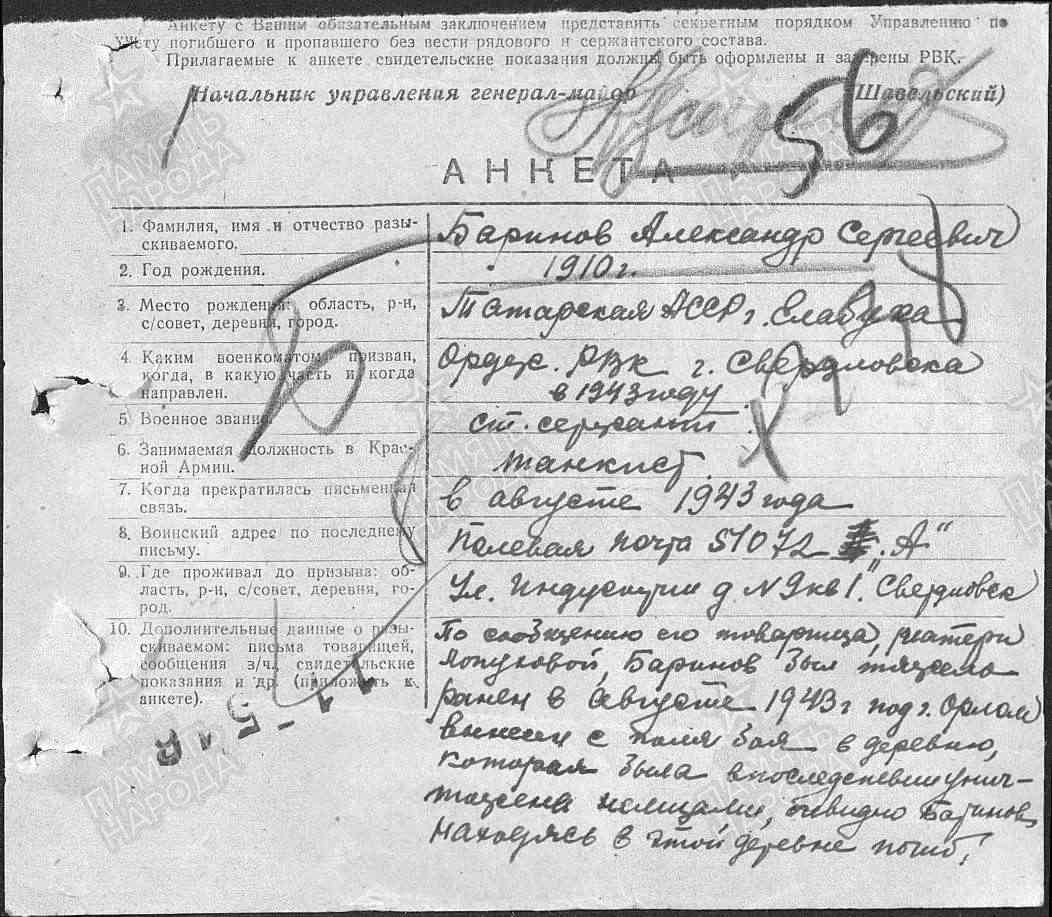 Анкету с Вашим обязательным заключением представить секретным порядком Управлению по
учету погибшего и пропавшего без вести рядового и сержантского состава.
Прилагаемые к анкете свидетельские показания должны быть оформлены и заверены РВК.
Начальник управления генерал-майор Шавельский)
56
АНКЕТА
1. Фамилия, имя и отчество разы-
скиваемого.
Баринов Александр Сергеевич
2. Год рождения.
1910 г.
3. Место рождения: область, р-н,
с/совет, деревня, город.
Татарская АССР г. Елабуга
4. Каким военкоматом призван,
когда, в какую часть и когда
направлен.
Ордж. РВК г. Свердловска
в 1943 году
5. Военное звание.
ст. сержант
6. Занимаемая должность в Крас-
ной Армии.
танкист
7. Когда прекратилась письменная
связь.
в августе 1943 года
8. Воинский адрес по последнему
письму.
Полевая почта 51072 „А"
9. Где проживал до призыва: об-
ласть, р-н, с/совет, деревня, го-
род.
Ул. Индустрии д. N 9 кв 1. Свердловск
10. Дополнительные данные о разы-
скиваемом: письма товарищей,
сообщения в/ч, свидетельские
показания и др. (приложить к
анкете).
По сообщению его товарища, матери
Лопуховой, Баринов был тяжело
ранен в августе 1943 г под г. Орлом
вынесен с поля боя в деревню,
которая была впоследствии унич-
тожена немцами, очевидно Баринов,
находясь в этой деревне погиб.
ПАМЯТЬ
НАРОДА